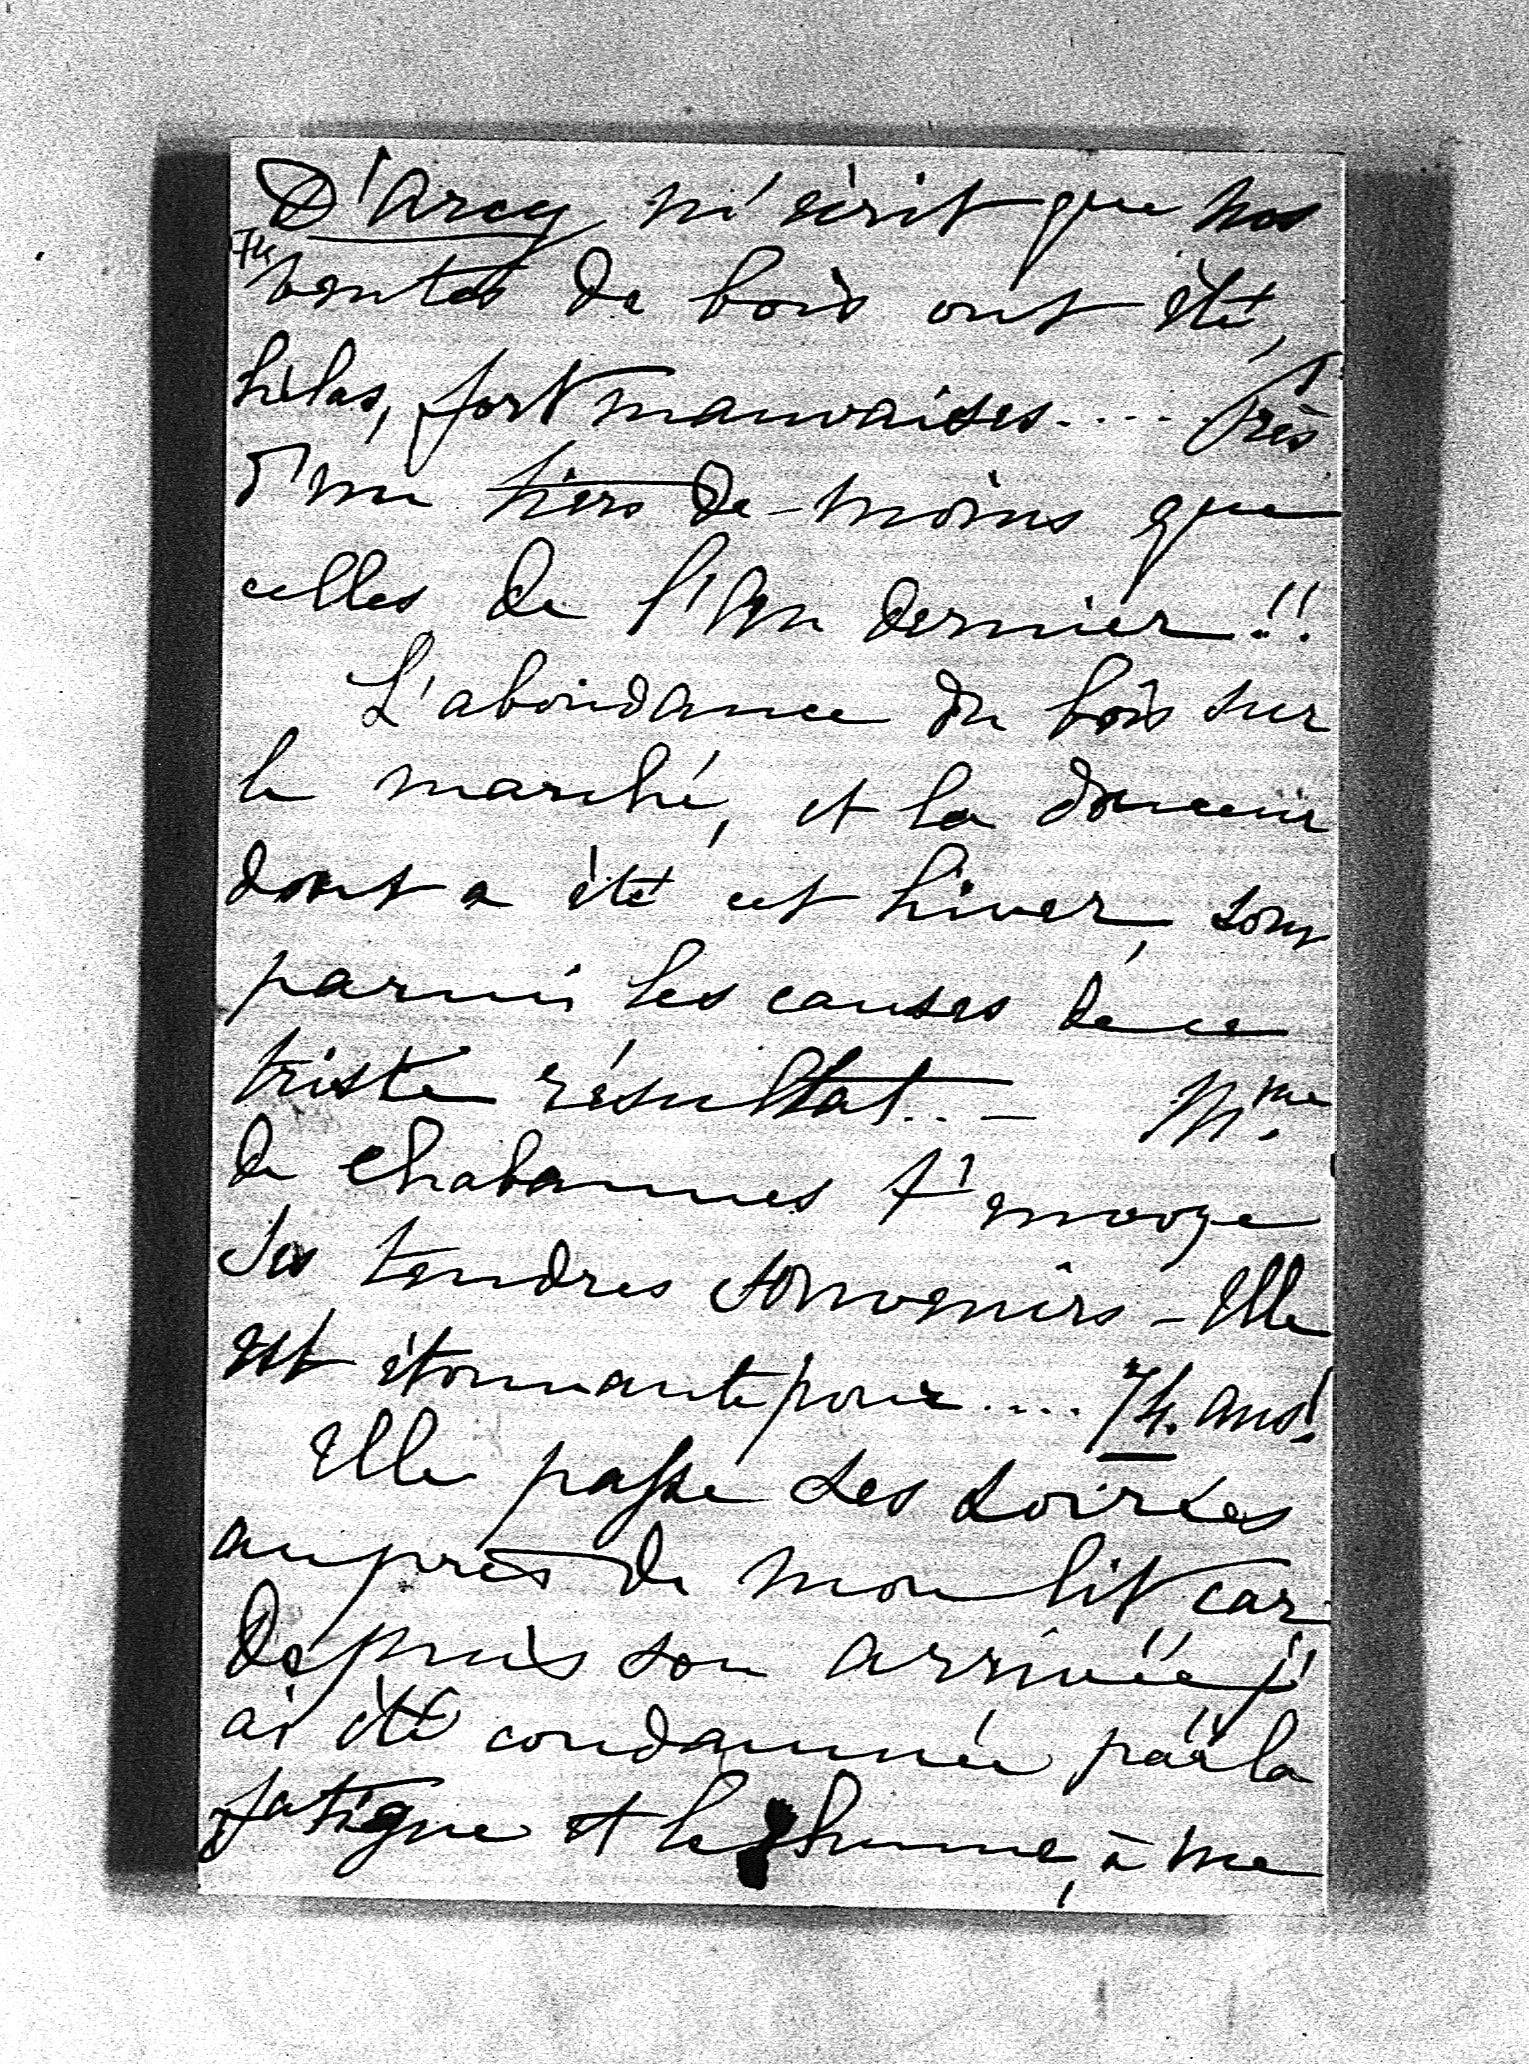 D'Arcy m'écrit que nos
ventes de bois ont été,
hélas, fort mauvaises.... Près
d'un tiers de moins que
celles de l'an dernier!!
L'abondance du bois sur
le marché, et la douceur
dont a été cet hiver, sont
parmi les causes de ce
triste résultat.. — Mme
de Chabannes t'envoye
ses tendres souvenirs — Elle
est étonnante pour.... 74. ans!
Elle passe ses soirées
auprès de mon lit car
depuis son arrivée j'
ai été condamnée par la
fatigue et le rhume, à me